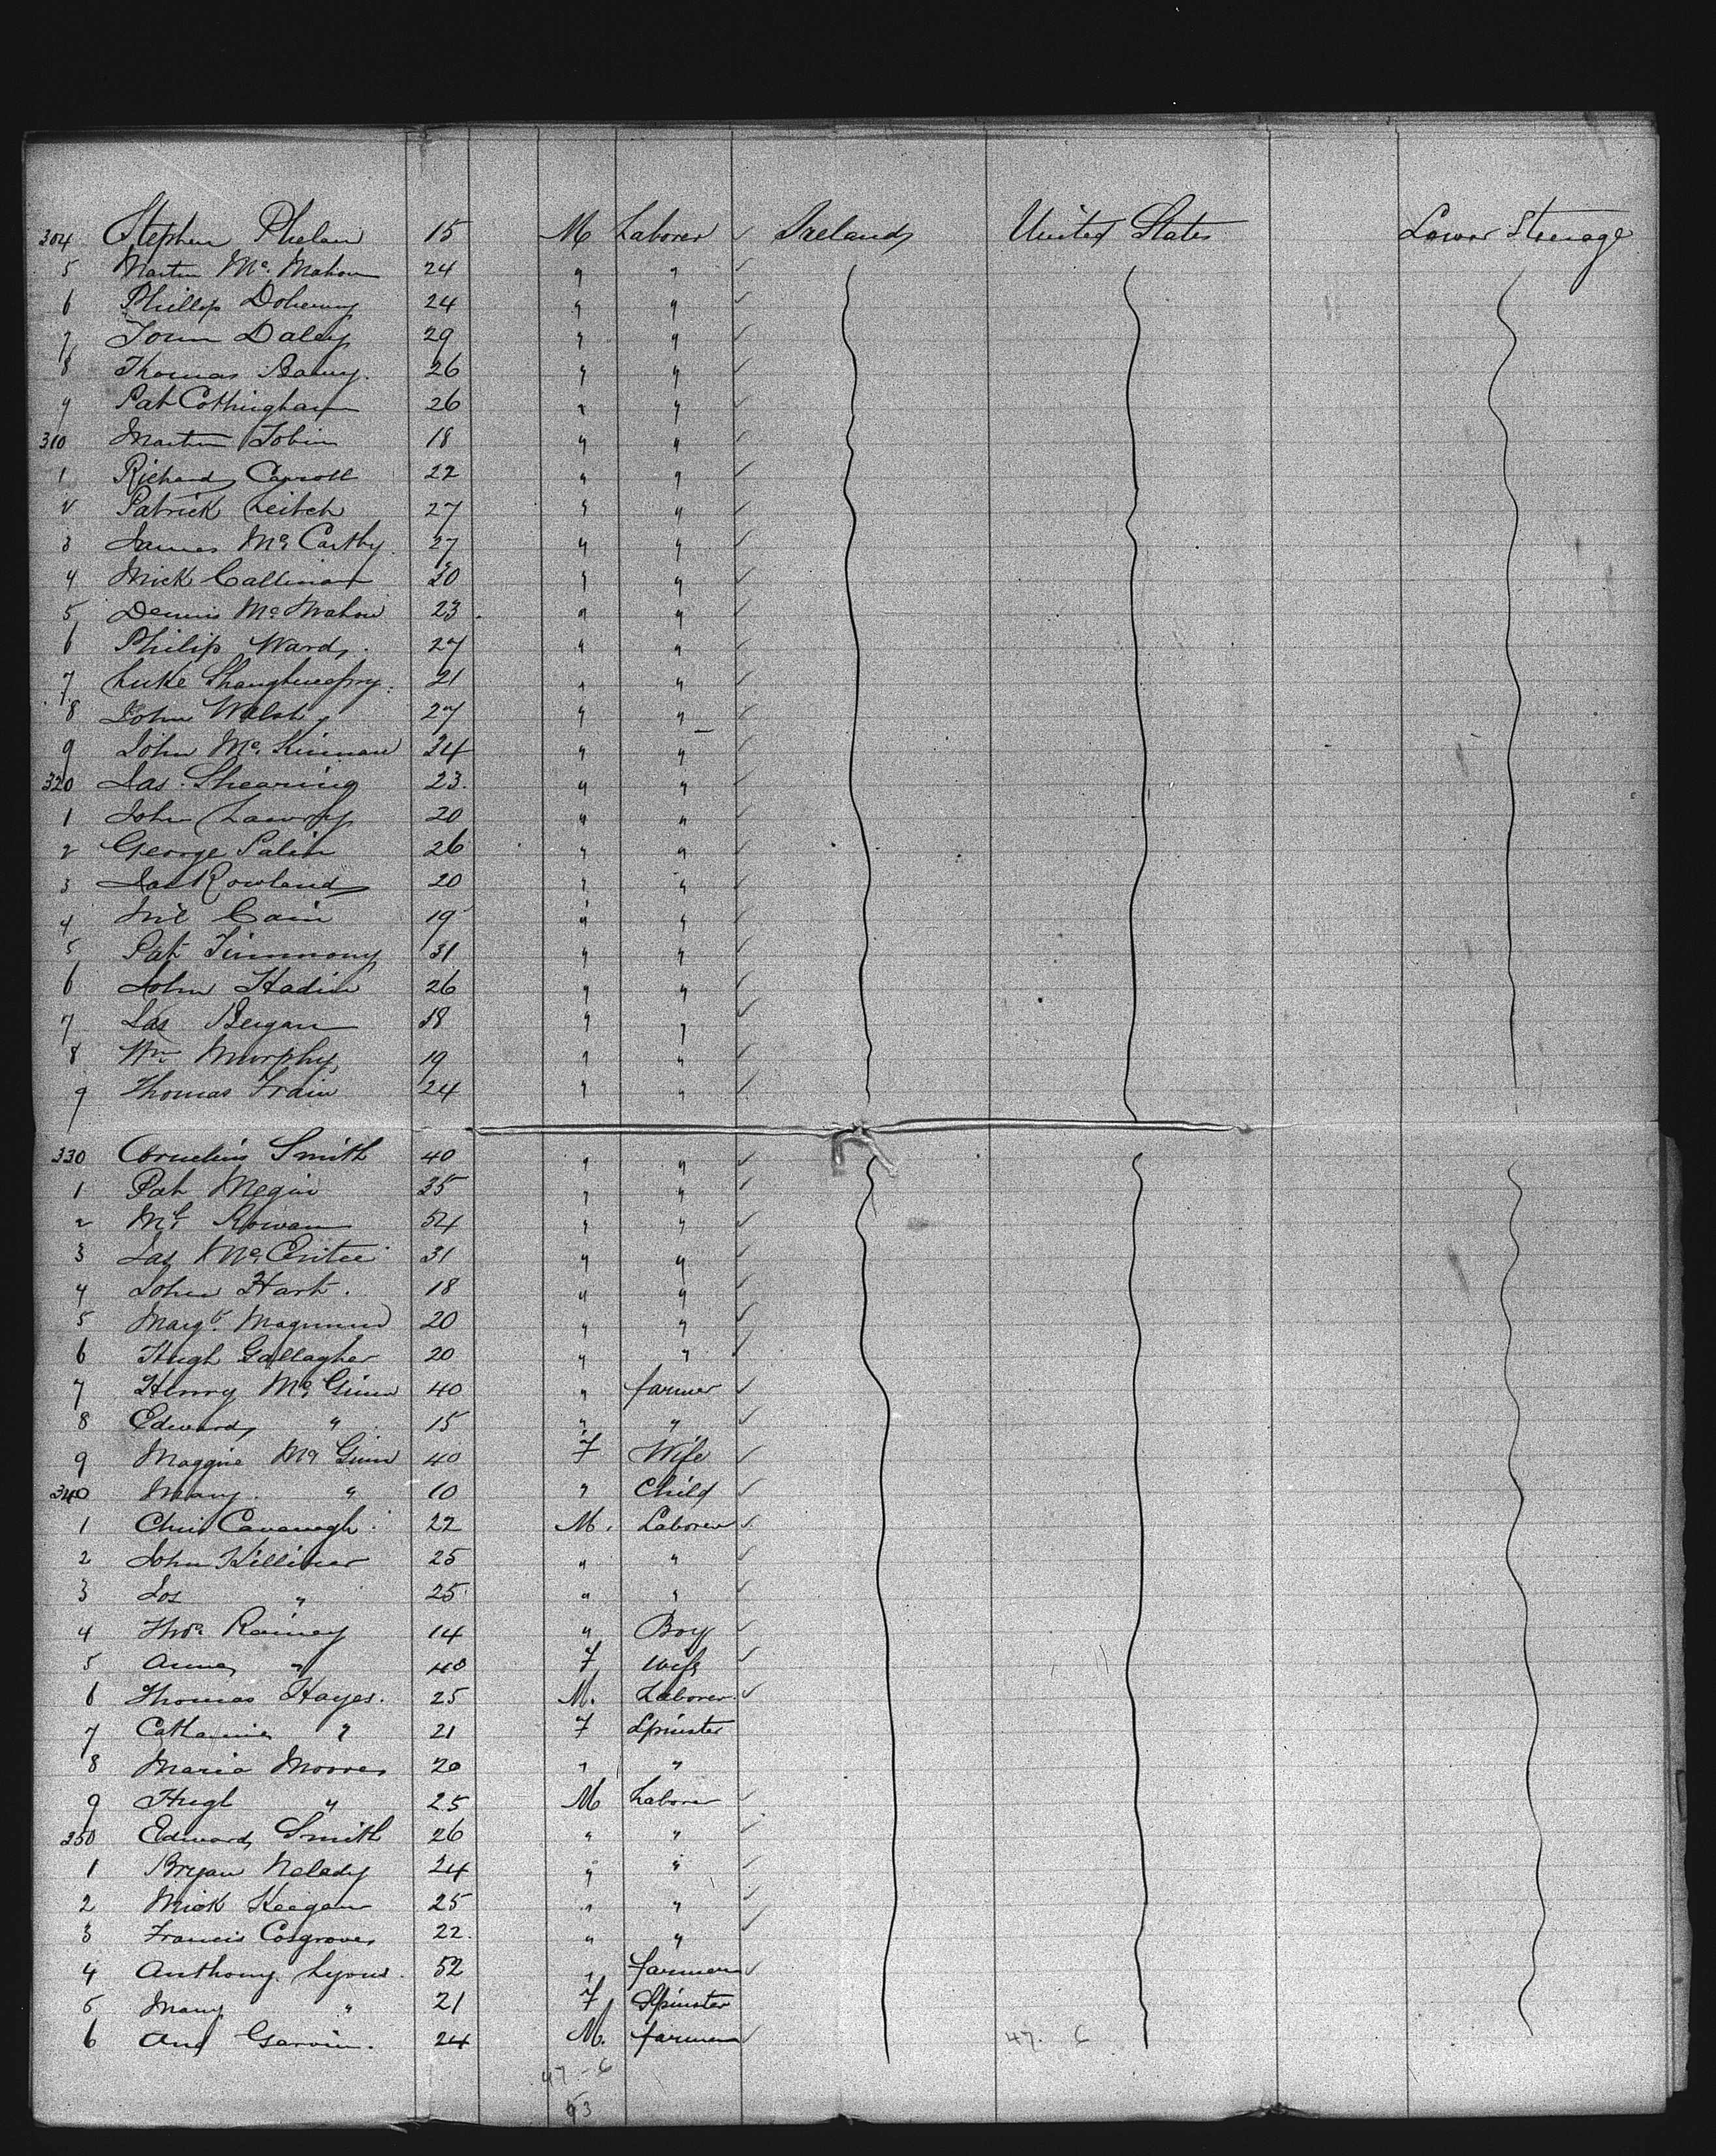 304 Stephen Phelan 15 M Laborer ✓ Ireland United States Lower Steerage
5 Martin Mc. Mahon 24 " " ✓
6 Phillip Doheny 24 " " ✓
7 John Daley 29 " " ✓
8 Thomas 26 " " ✓
9 Pat Cottingham 26 " " ✓
310 Martin Tobin 18 " " ✓
1 Richard Carroll 22 " " ✓
2 Patrick Leitch 27 " " ✓
3 James Mc Carthy 27 " " ✓
4 Mick Callinan 20 " " ✓
5 Dennis Mc Mahon 23 " " ✓
6 Philip Ward 27 " " ✓
7 Luke Shaughnessy 21 " " ✓
8 John Walsh 27 " " ✓
9 John Mc. Kinnan 24 " " ✓
320 Jas. Shearing 23 " " ✓
1 John Lawry 20 " " ✓
2 George 26 " " ✓
3 Jas Rowland 20 " " ✓
4 Cain 19 " " ✓
5 Pat Timmony 31 " " ✓
6 John Hadin 26 " " ✓
7 Jas Bergan 18 " " ✓
8 Wm Murphy 19 " " ✓
9 Thomas Frain 24 " " ✓
330 Cornelius Smith 40 " " ✓
1 Pat Megin 35 " " ✓
2 Ml Rowan 54 " " ✓
3 Jas Mc Entee 31 " " ✓
4 John Hart. 18 " " ✓
5 Margt. 20 " " ✓
6 Hugh Gallagher 20 " " ✓
7 Henry Mc Ginn 40 " farmer ✓
8 Edward " 15 " " ✓
9 Maggie Mc Ginn 40 F Wife ✓
340 Mary " 10 " Child ✓
1 Chris Cavanagh 22 M. Laborer ✓
2 John Killiner 25 " " ✓
3 Jos " 25 " " ✓
4 Thos. Rainey 14 " Boy ✓
5 Anne " 40 F wife ✓
6 Thomas Hayes. 25 M. Laborer ✓
7 Catharine " 21 F Spinster
8 Maria Moores 20 " "
9 Hugh " 25 M Laborer ✓
350 Edward Smith 26 " " ✓
1 Bryan Nelady 24 " " ✓
2 Mick Keegan 25 " " ✓
3 Francis Cosgrove 22 " " ✓
4 Anthony Lyons. 52 " farmer ✓
5 Mary " 21 F Spinster
6 And Garvin. 24 M. farmer ✓ 47. 6
47 - 6
53